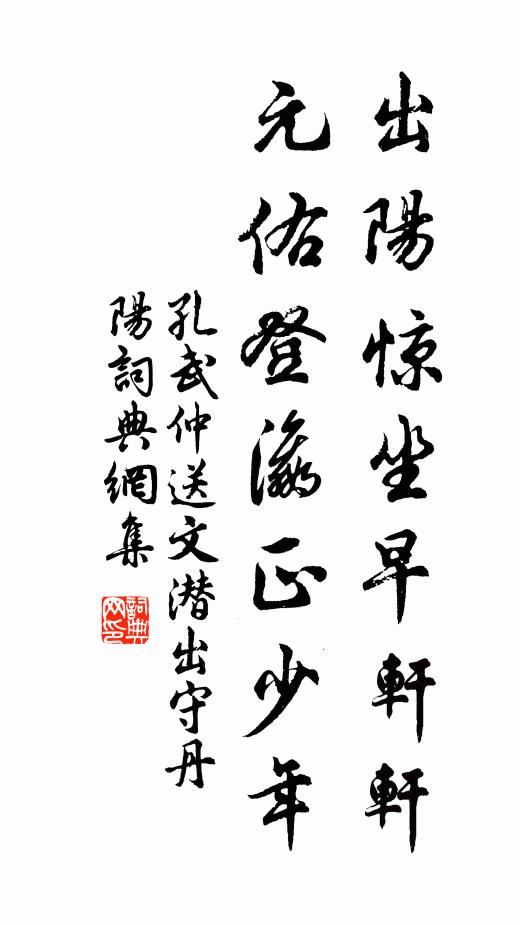 出陽惊坐早軒軒
元佑登瀛正少年
孔武仲送文潜出守丹
陽詞典網集
詞典网印